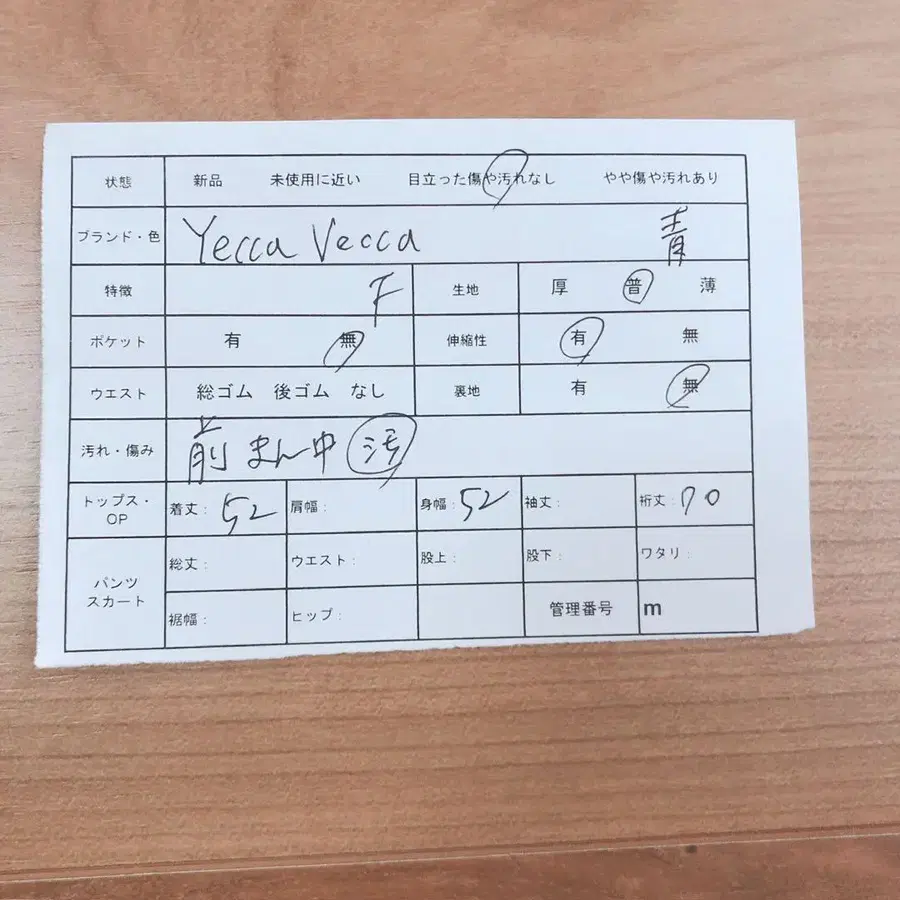 状態 新品 未使用に近い 目立った傷や汚れなし やや傷や汚れあり
ブランド・色 Yecca Vecca 青
特徴 F 生地 厚 普 薄
ポケット 有 無 伸縮性 有 無
ウエスト 総ゴム 後ゴム なし 裏地 有 無
汚れ・傷み 前 まん中 汚
トップス・OP 着丈: 52 肩幅: 身幅: 52 袖丈: 裄丈: 70
パンツ スカート 総丈: ウエスト: 股上: 股下: ワタリ:
裾幅: ヒップ: 管理番号 m